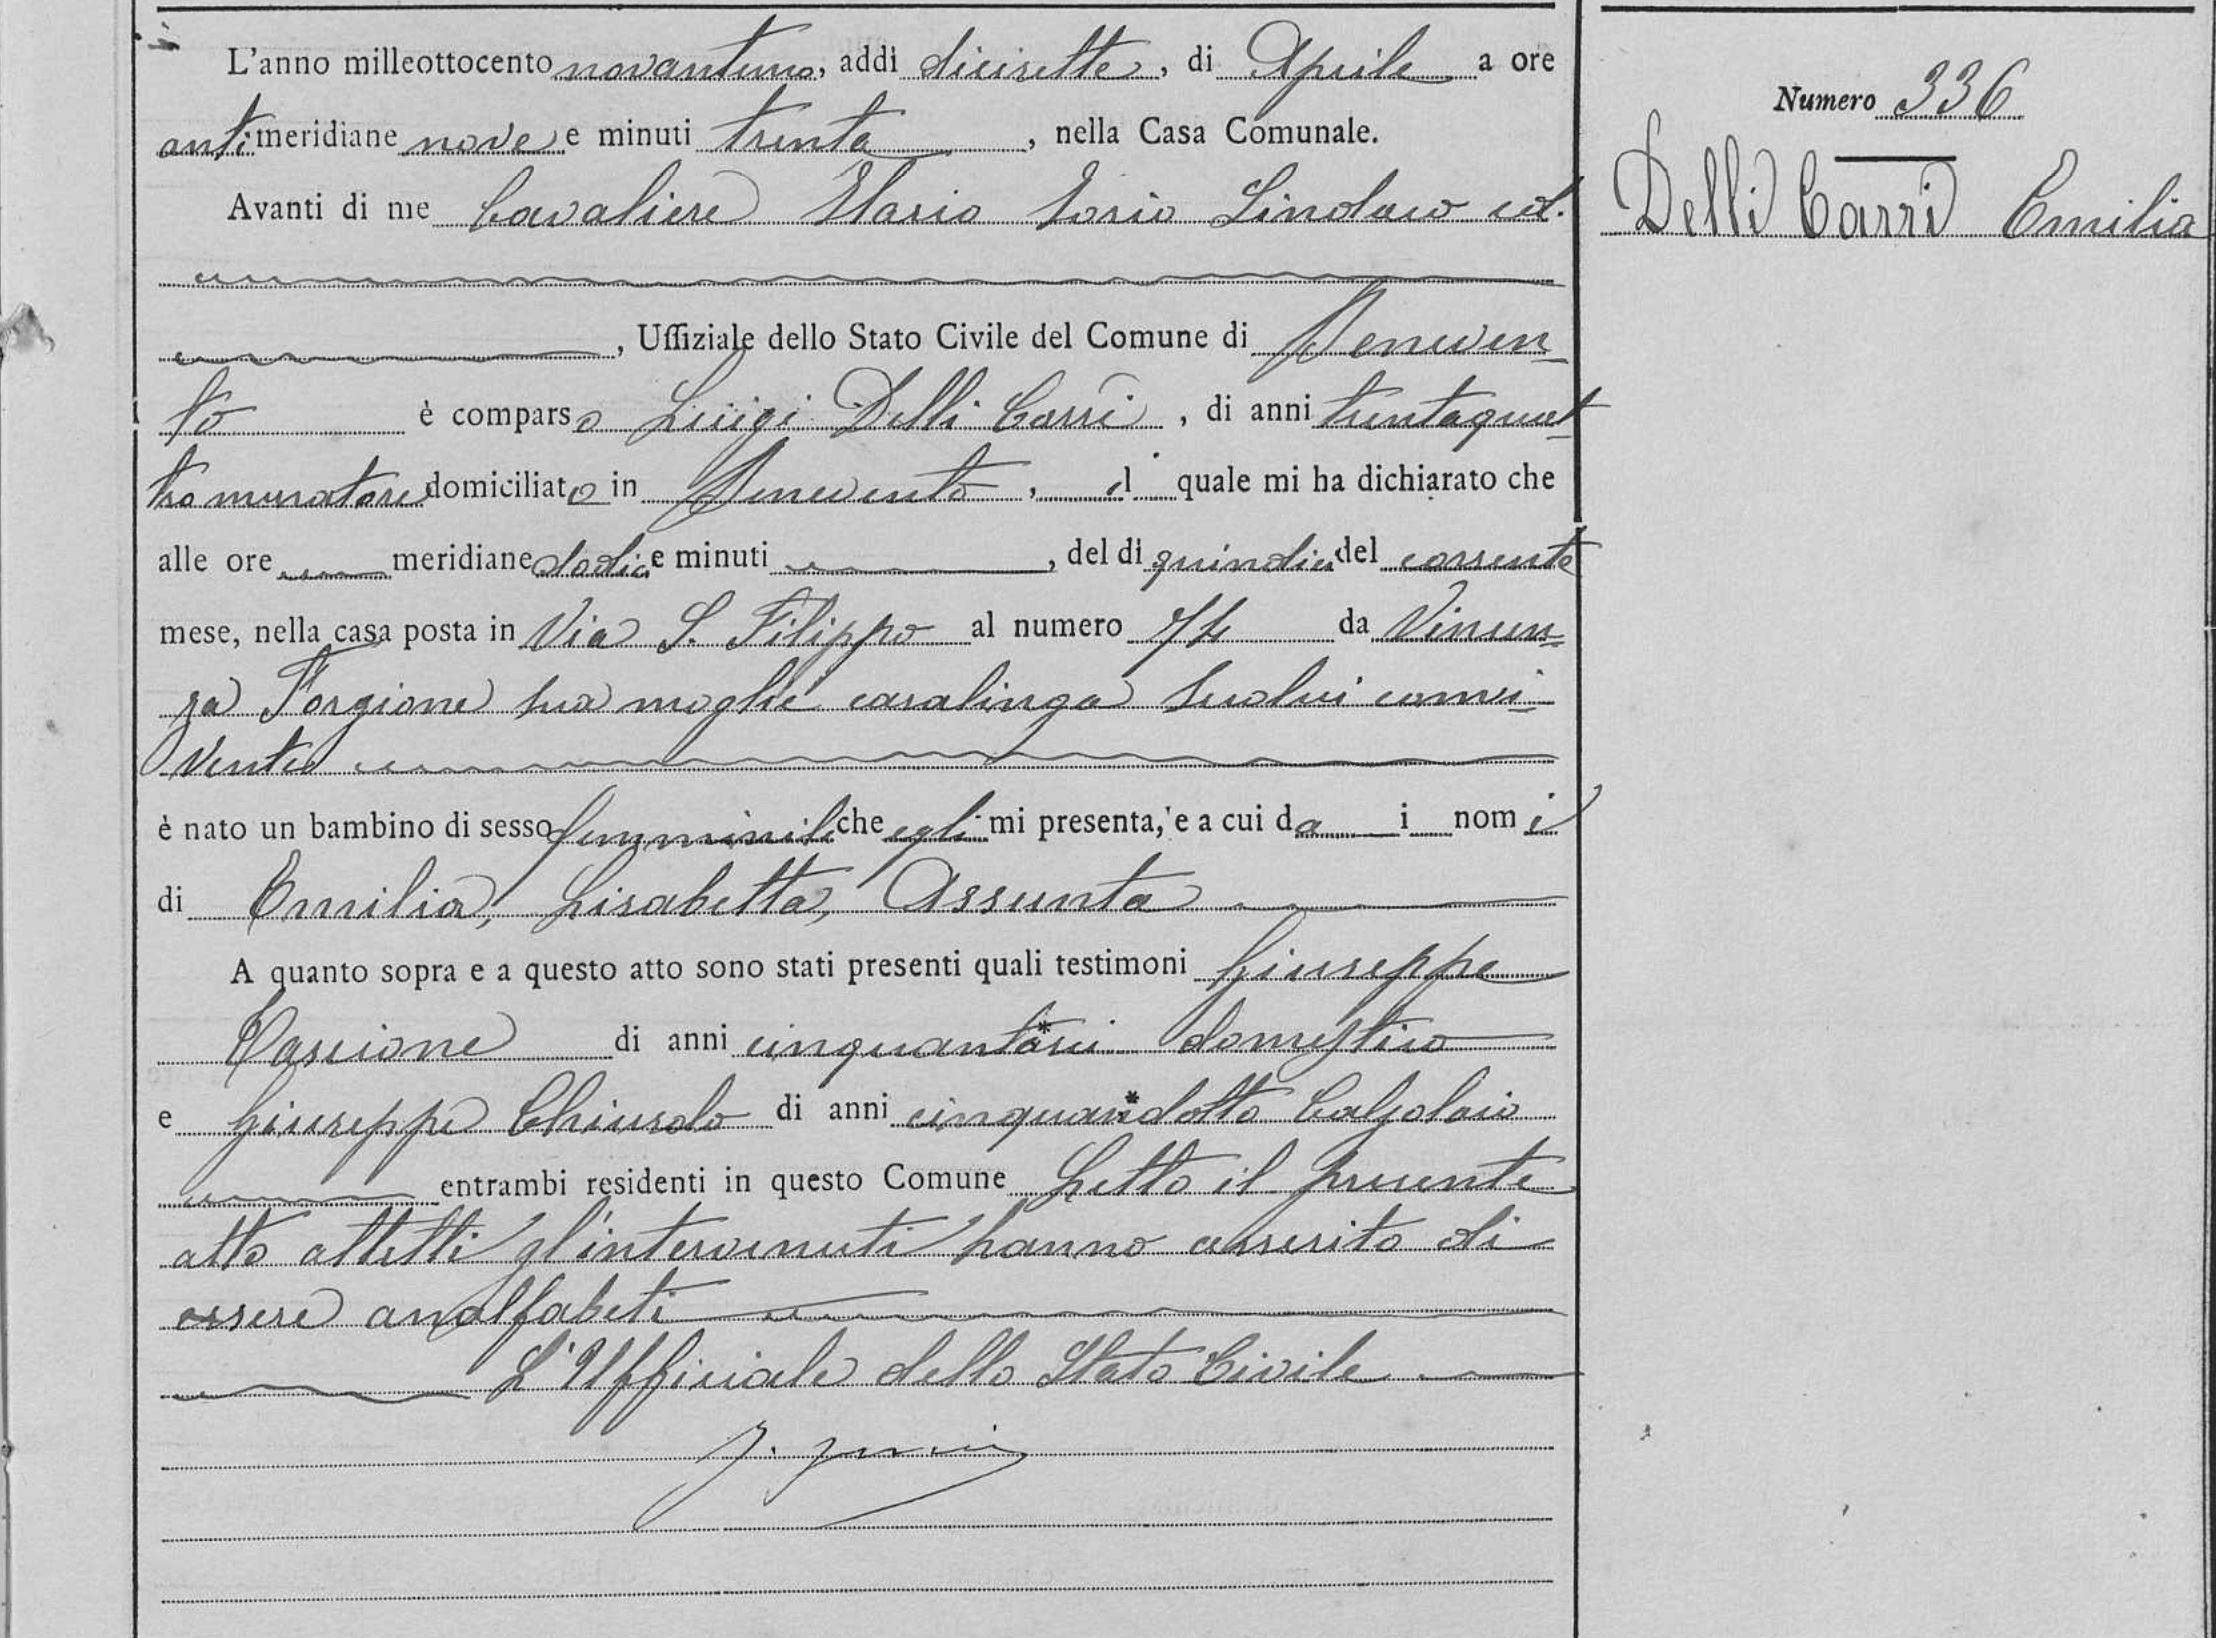 L'anno milleottocento novantuno, addì dicisette, di Aprile a ore
antimeridiane nove e minuti trenta, nella Casa Comunale.
Avanti di me Cavaliere Ilario Iorio Sindaco ed.
, Uffiziale dello Stato Civile del Comune di Beneven-
to è comparso Luigi Delli Carri, di anni trentaquat-
tro muratore domiciliato in Benevento, il quale mi ha dichiarato che
alle ore meridiane dodici e minuti , del dì quindici del corrente
mese, nella casa posta in Via S. Filippo al numero da Vincen-
za Forgione sua moglie casalinga seco lui convi-
vente
è nato un bambino di sesso femminile che egli mi presenta, e a cui da i nomi
di Emilia, Lisabetta, Assunta
A quanto sopra e a questo atto sono stati presenti quali testimoni Giuseppe
di anni domestico
e Giuseppe Chiusolo di anni Calzolaio
entrambi residenti in questo Comune Letto il presente
atto a tutti gl'intervenuti hanno asserito di
essere analfabeti
L'Ufficiale dello Stato Civile
Numero 336
Delli Carri Emilia